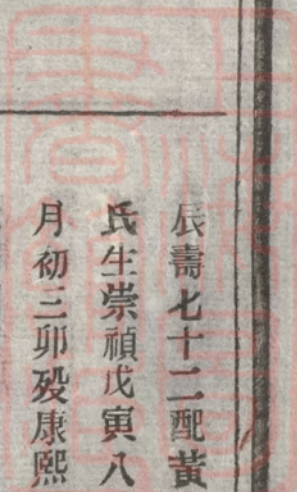 辰壽七十二配黃
氏生崇禎戊寅八
月初三卯殁康熙